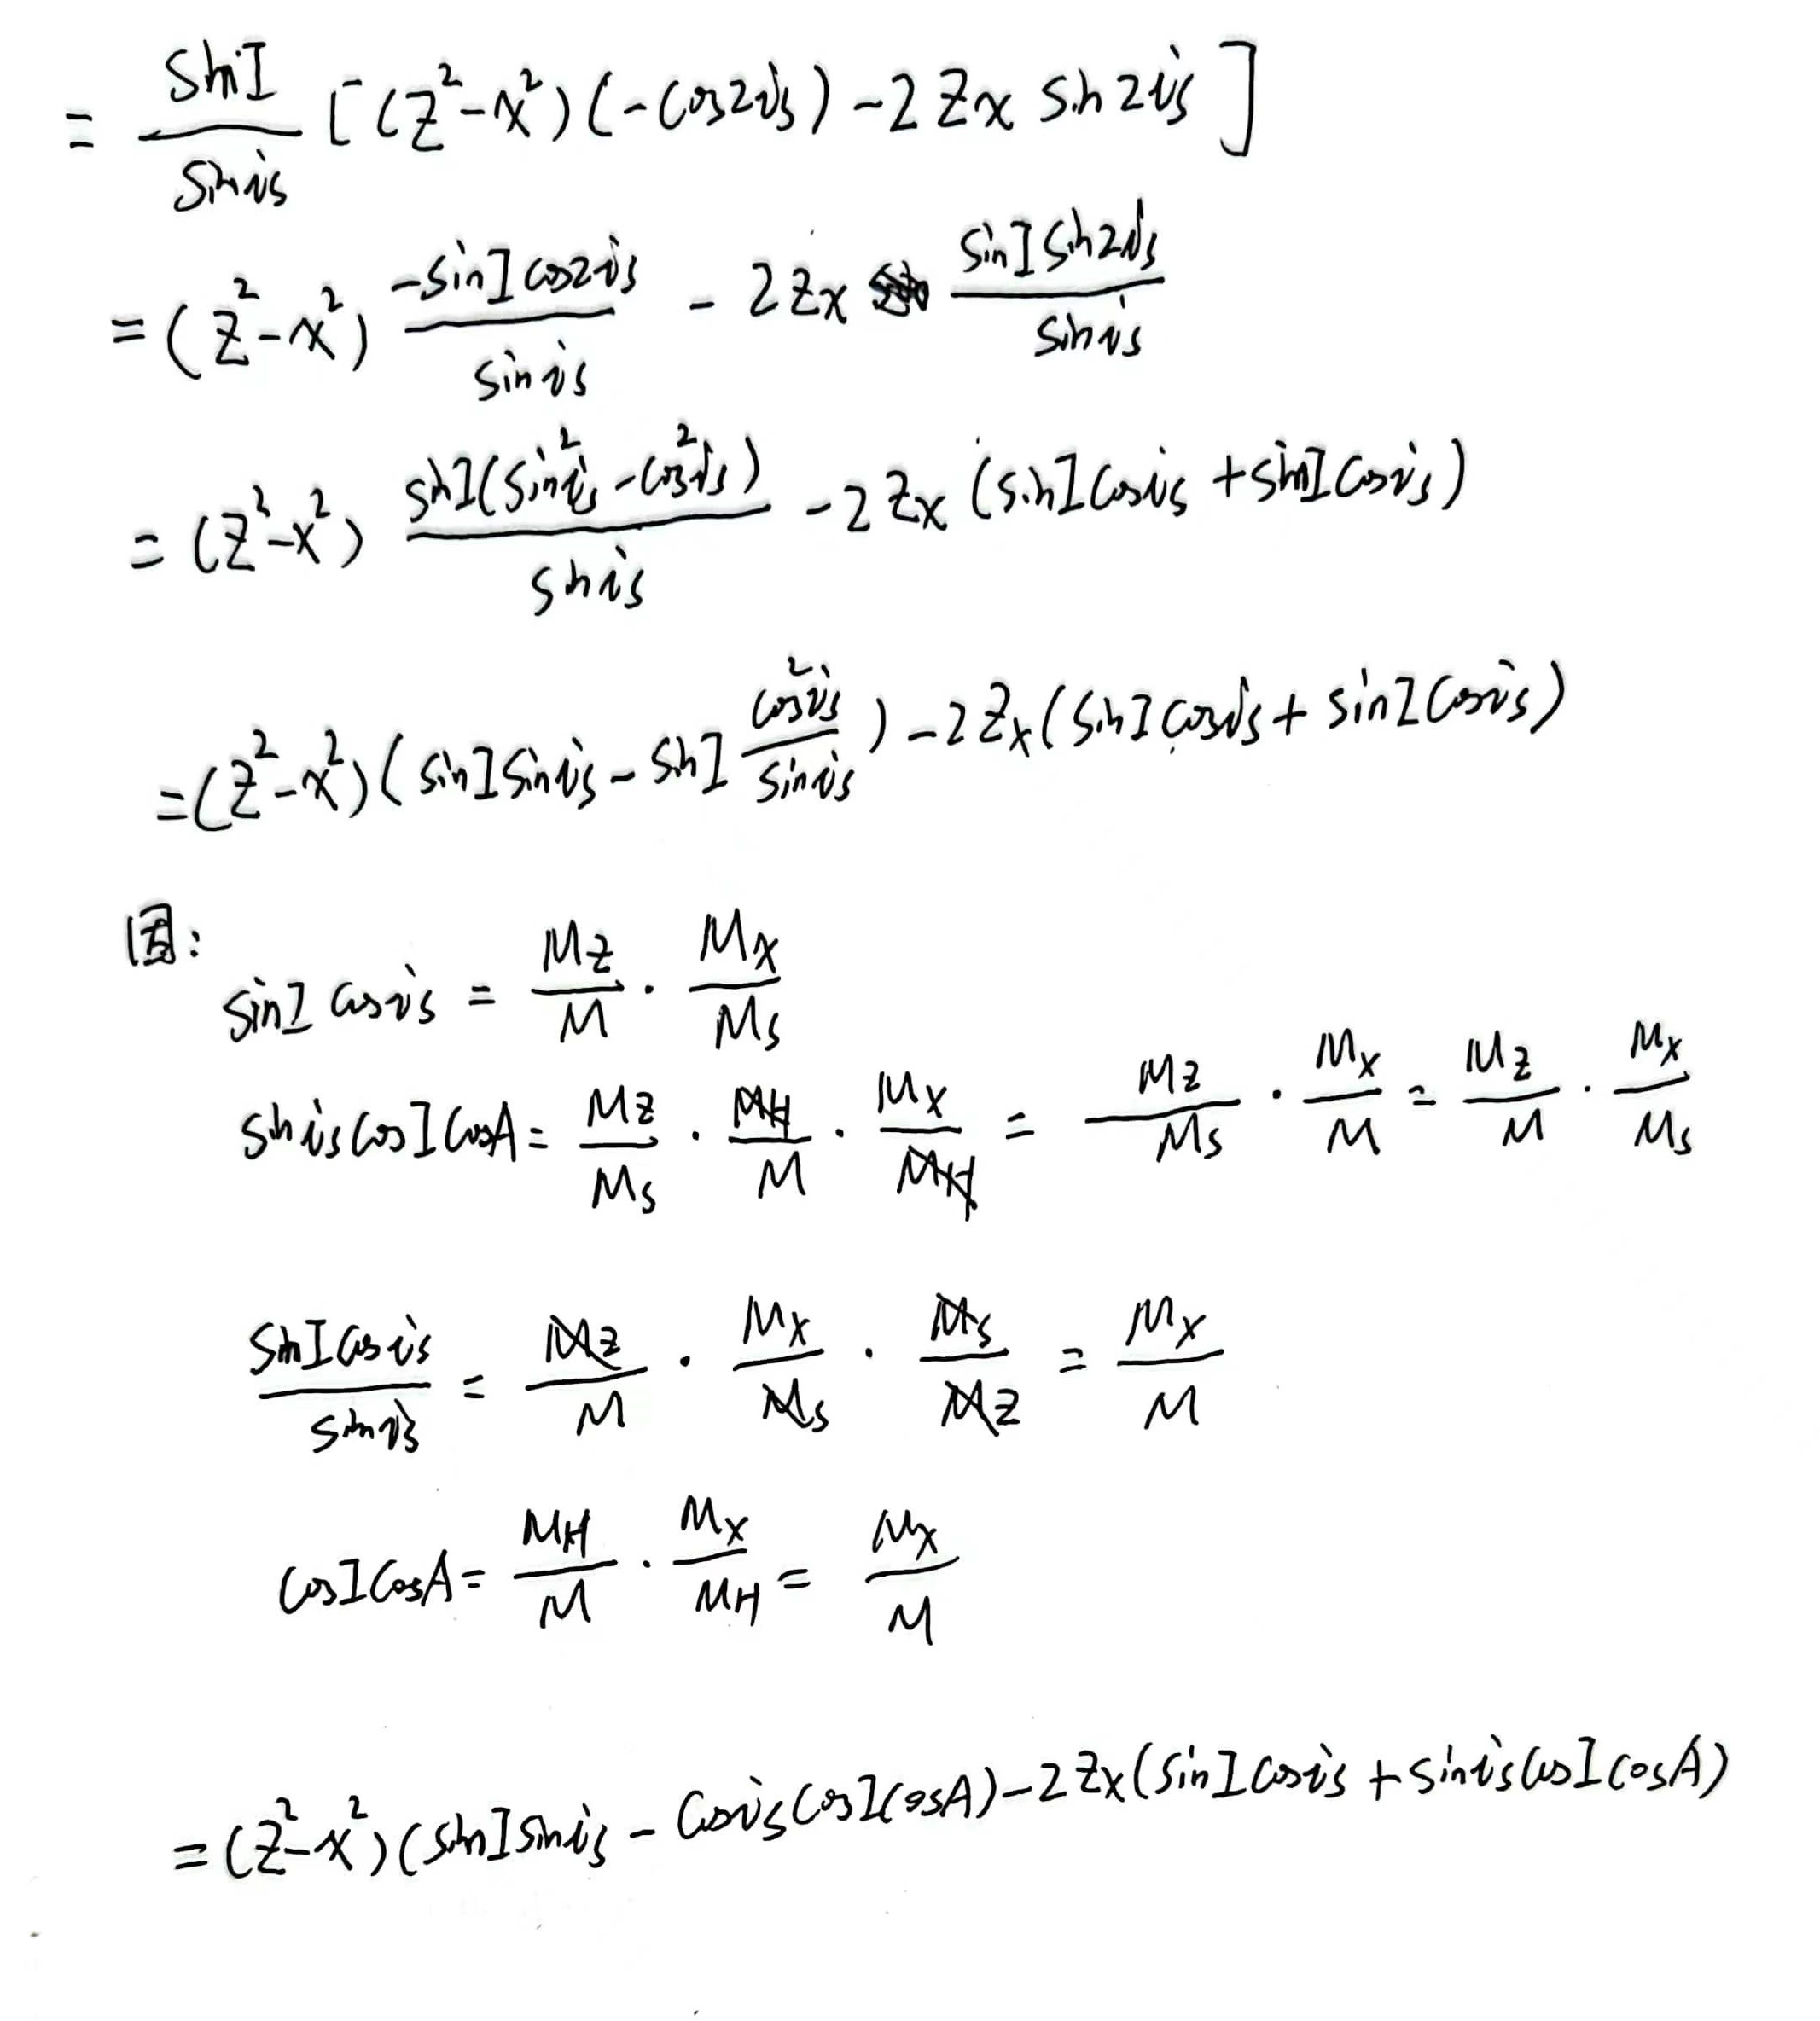 = \frac{sinI}{sin i_s} [(z²-x²)(-cos2i_s)-2zx sin2i_s]
=(z²-x²) \frac{-sinI cos2i_s}{sin i_s} - 2zx \frac{sinI sin2i_s}{sin i_s}
=(z²-x²) \frac{sinI(sin²i_s-cos²i_s)}{sin i_s} -2zx (sinI cos i_s + sinI cos i_s)
=(z²-x²)(sinI sin i_s - sinI \frac{cos²i_s}{sin i_s})-2zx(sinI cos i_s + sinI cos i_s)
因:
sinI cos i_s = \frac{M_z}{M} · \frac{M_x}{M_s}
sin i_s cosI cosA = \frac{M_z}{M_s} · \frac{M_H}{M} · \frac{M_x}{M_H} = \frac{M_z}{M_s} · \frac{M_x}{M} = \frac{M_z}{M} · \frac{M_x}{M_s}
\frac{sinI cos i_s}{sin i_s} = \frac{M_z}{M} · \frac{M_x}{M_s} · \frac{M_s}{M_z} = \frac{M_x}{M}
cosI cosA = \frac{M_H}{M} · \frac{M_x}{M_H} = \frac{M_x}{M}
=(z²-x²)(sinI sin i_s - cos i_s cosI cosA)-2zx(sinI cos i_s + sin i_s cosI cosA)